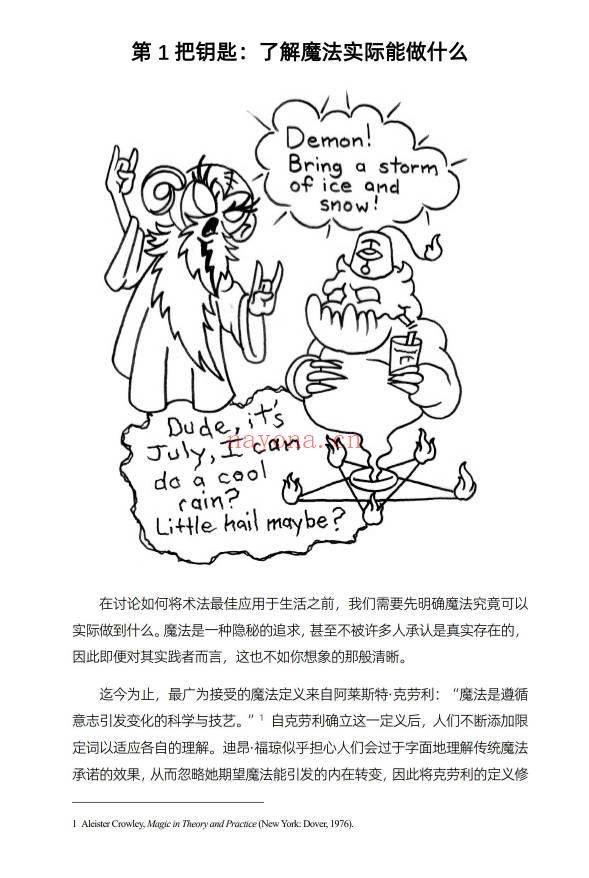 第 1 把钥匙：了解魔法实际能做什么
Demon!
Bring a storm
of ice and
snow!
Dude, it's
July, I can
do a cool
rain?
Little hail maybe?
nayona.cn
在讨论如何将术法最佳应用于生活之前，我们需要先明确魔法究竟可以
实际做到什么。魔法是一种隐秘的追求，甚至不被许多人承认是真实存在的，
因此即便对其实践者而言，这也不如你想象的那般清晰。
迄今为止，最广为接受的魔法定义来自阿莱斯特·克劳利：“魔法是遵循
意志引发变化的科学与技艺。”1 自克劳利确立这一定义后，人们不断添加限
定词以适应各自的理解。迪昂·福琼似乎担心人们会过于字面地理解传统魔法
承诺的效果，从而忽略她期望魔法能引发的内在转变，因此将克劳利的定义修
1 Aleister Crowley, Magic in Theory and Practice (New York: Dover, 1976).